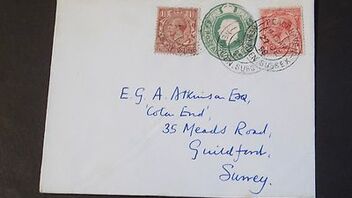 E.G.A. Atkinson Esq,
'Cotar End',
35 Meads Road,
Guildford,
Surrey.